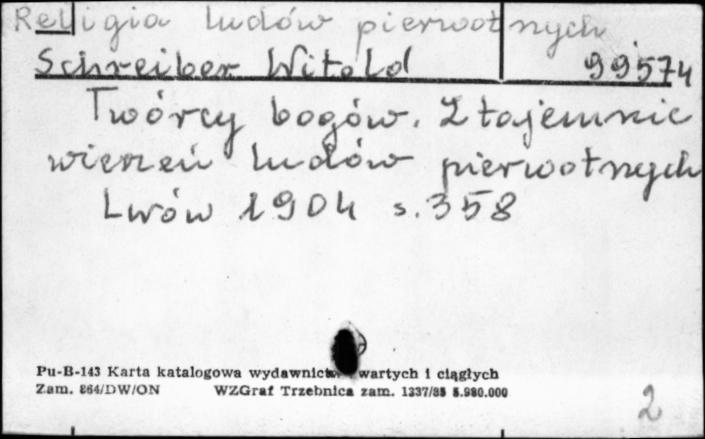 Religia ludów pierwotnych
Schreiber Witold 99574
Twórcy bogów. Z tajemnic
wierzeń ludów pierwotnych
Lwów 1904 s. 358
Pu-B-143 Karta katalogowa wydawnictw zwartych i ciągłych
Zam. 864/DW/ON WZGraf Trzebnica zam. 1337/85 5.980.000
2